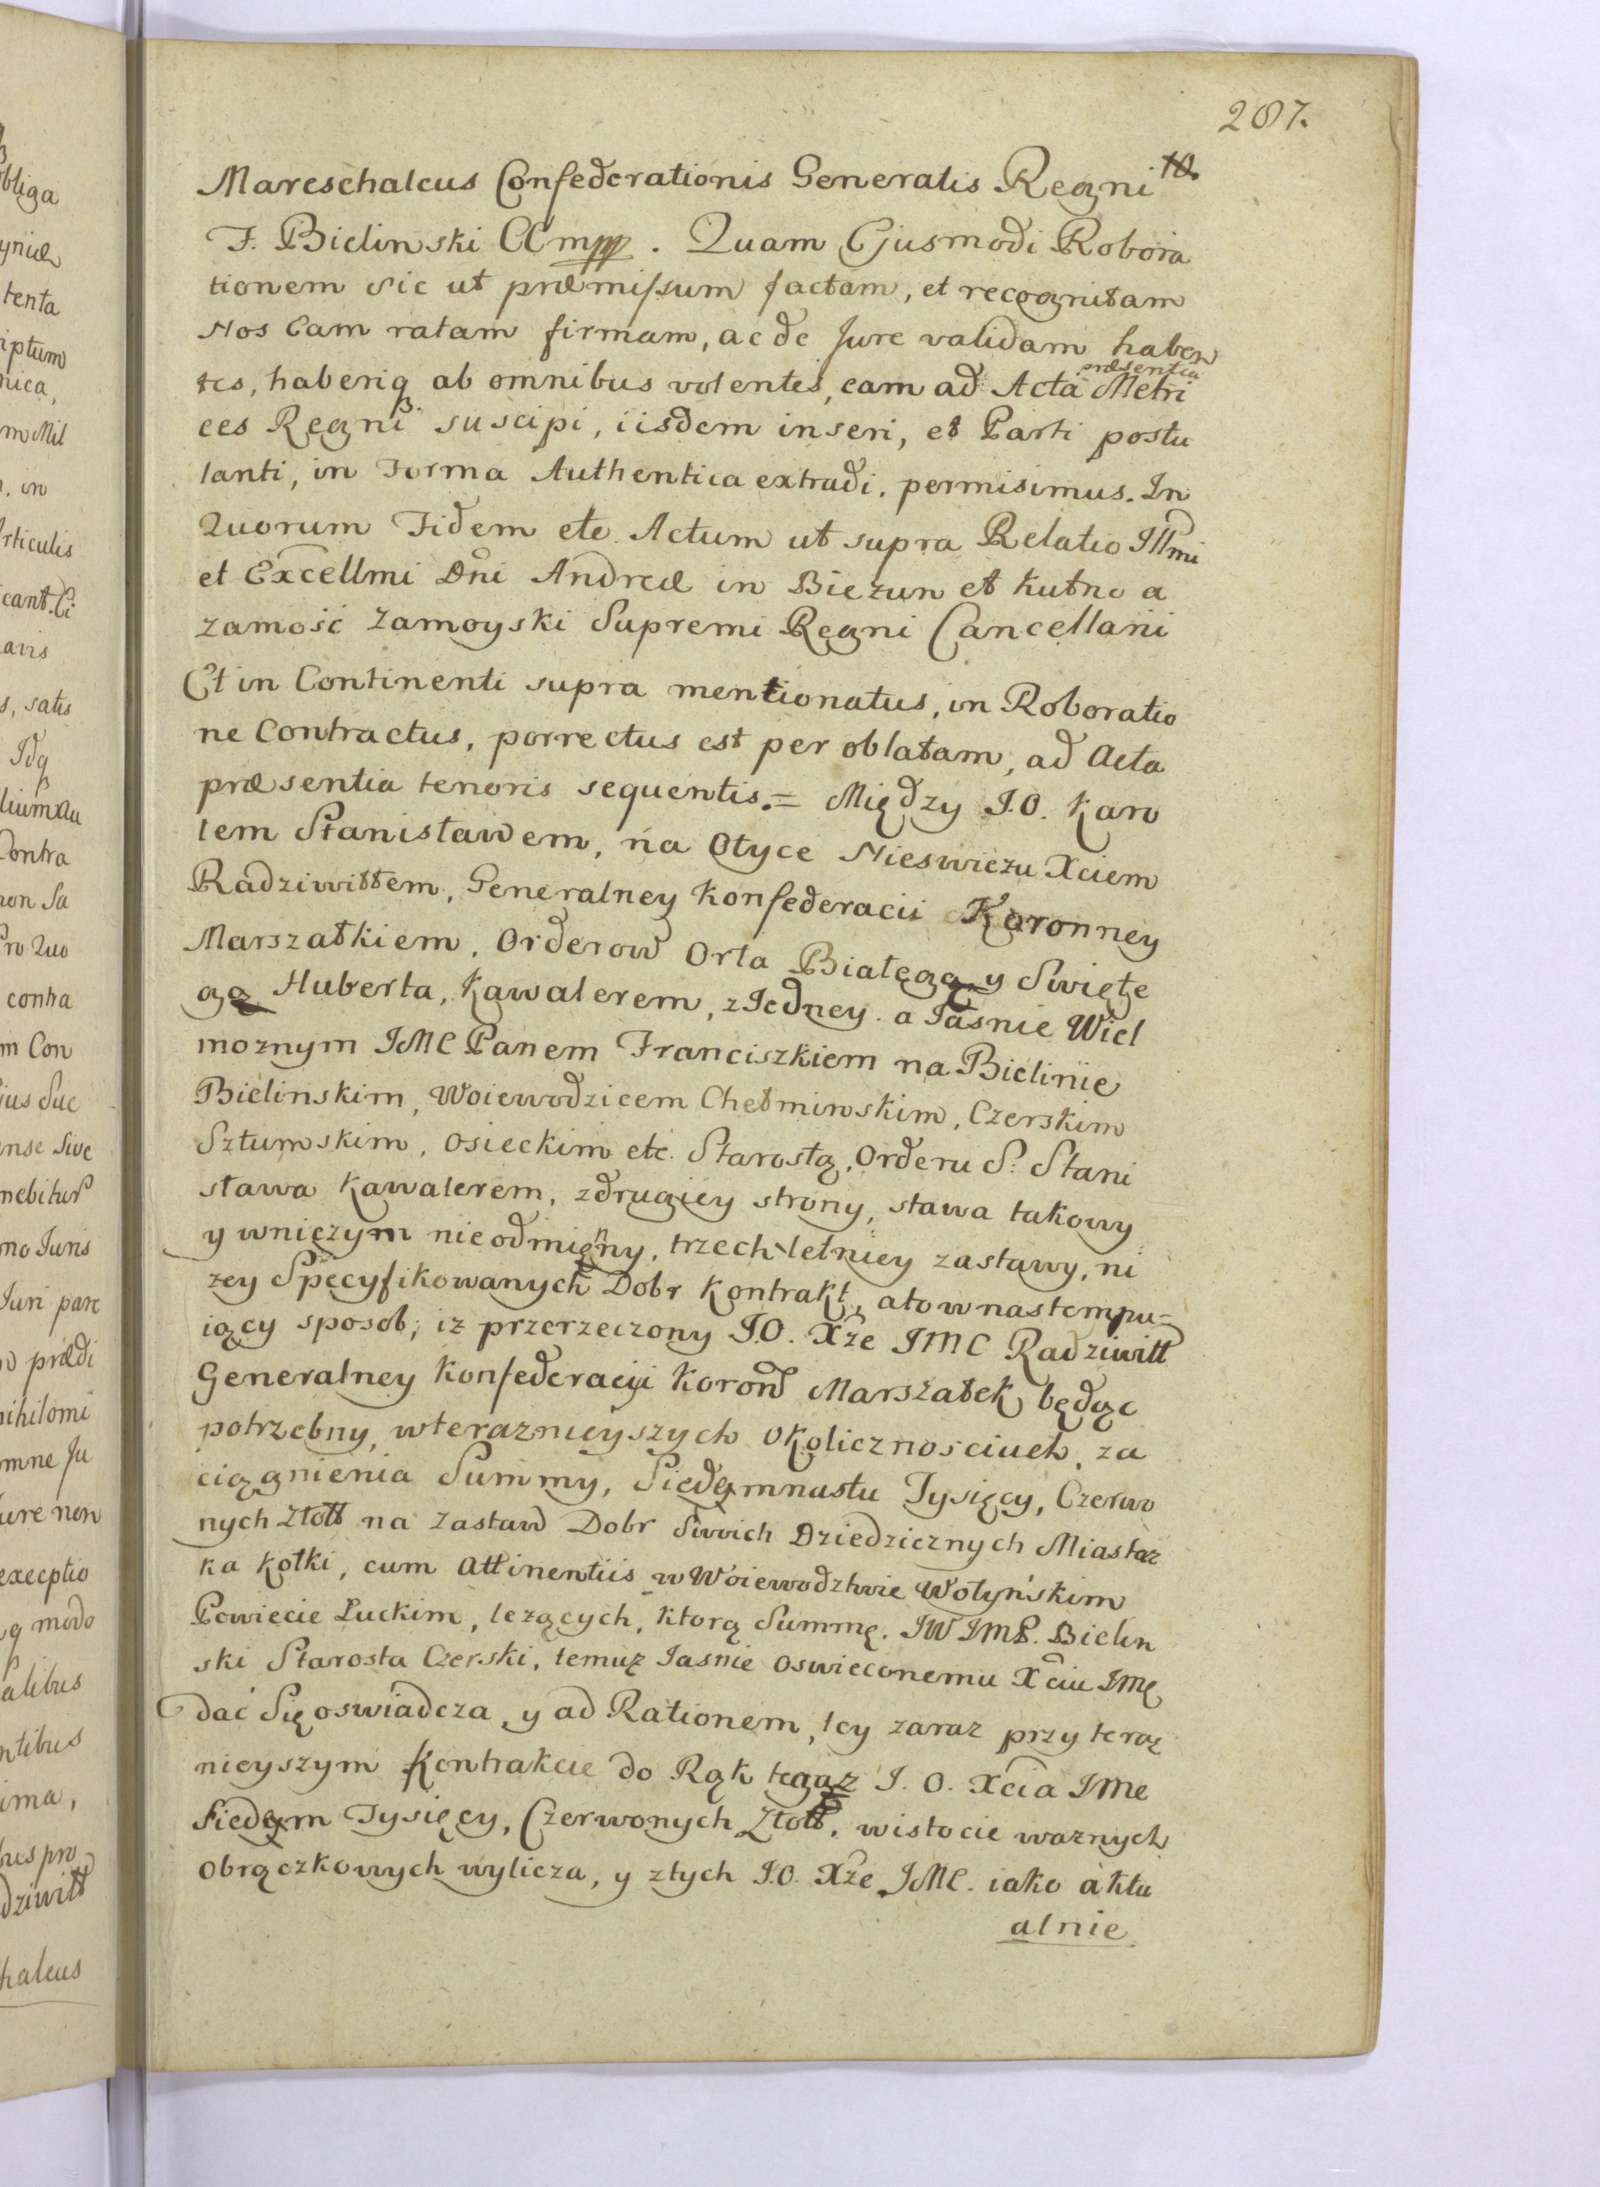 287.
Mareschalcus Confederationis Generalis Regni
F. Bielinski CCmpp. Quam Ejusmodi Robora
tionem sic ut præmissum factam, et recognitam
Nos Eam ratam firmam, ac de Jure validam haben
tes, haberiq ab omnibus volentes, eam ad Acta præsentia Metri
ces Regni suscipi, iisdem inseri, et Parti postu
lanti, in Forma Authentica extradi, permisimus. In
Quorum Fidem etc. Actum ut supra Relatio Illmi
et Excellmi Dni Andreæ in Biezun et Kutno a
Zamość Zamoyski Supremi Regni Cancellarii
Et in Continenti supra mentionatus, in Roboratio
ne Contractus, porrectus est per oblatam, ad Acta
præsentia tenoris sequentis.= Między J.O. Karo
lem Stanisławem, na Ołyce Nieswieżu Xciem
Radziwiłłem, Generalney Konfederacii Koronney
Marszałkiem, Orderow Orła Białego y Swięte
go Huberta, Kawalerem, z Jedney. a Jaśnie Wiel
możnym JMC Panem Franciszkiem na Bielinie
Bielinskim, Woiewodzicem Chełminskim, Czerskim
Sztumskim, Osieckim etc. Starostą, Orderu S: Stani
sława Kawalerem, z drugiey strony, stawa takowy
y wniczym nieodmienny, trzechletniey zastawy, ni
zey Specyfikowanych Dobr Kontrakt, ato wnastempu=
iący sposob; iz przerzeczony J.O. Xże JMC Radziwiłł
Generalney Konfederacyi Koron Marszałek będąc
potrzebny, wteraznieyszych okolicznosciach, za
ciągnienia Summy, Siedmnastu Tysięcy, Czerwo
nych Złott na Zastaw Dobr Swoich Dziedzicznych Miastecz
ka Kołki, cum Attinentiis w Woiewodztwie Wołyńskim
Powiecie Łuckim, leżących, ktorą Summę. JW JMP. Bielin
ski Starosta Czerski, temuż Jasnie oswieconemu Xciu JMC
dać Się oswiadcza, y ad Rationem, tey zaraz przy teraz
nieyszym Kontrakcie do Rąk tegoż J. O. Xcia JMC
Siedem Tysięcy, Czerwonych Złott, wistocie ważnych
Obrączkowych wylicza, y ztych J.O. Xże JMC. iako aktu
alnie